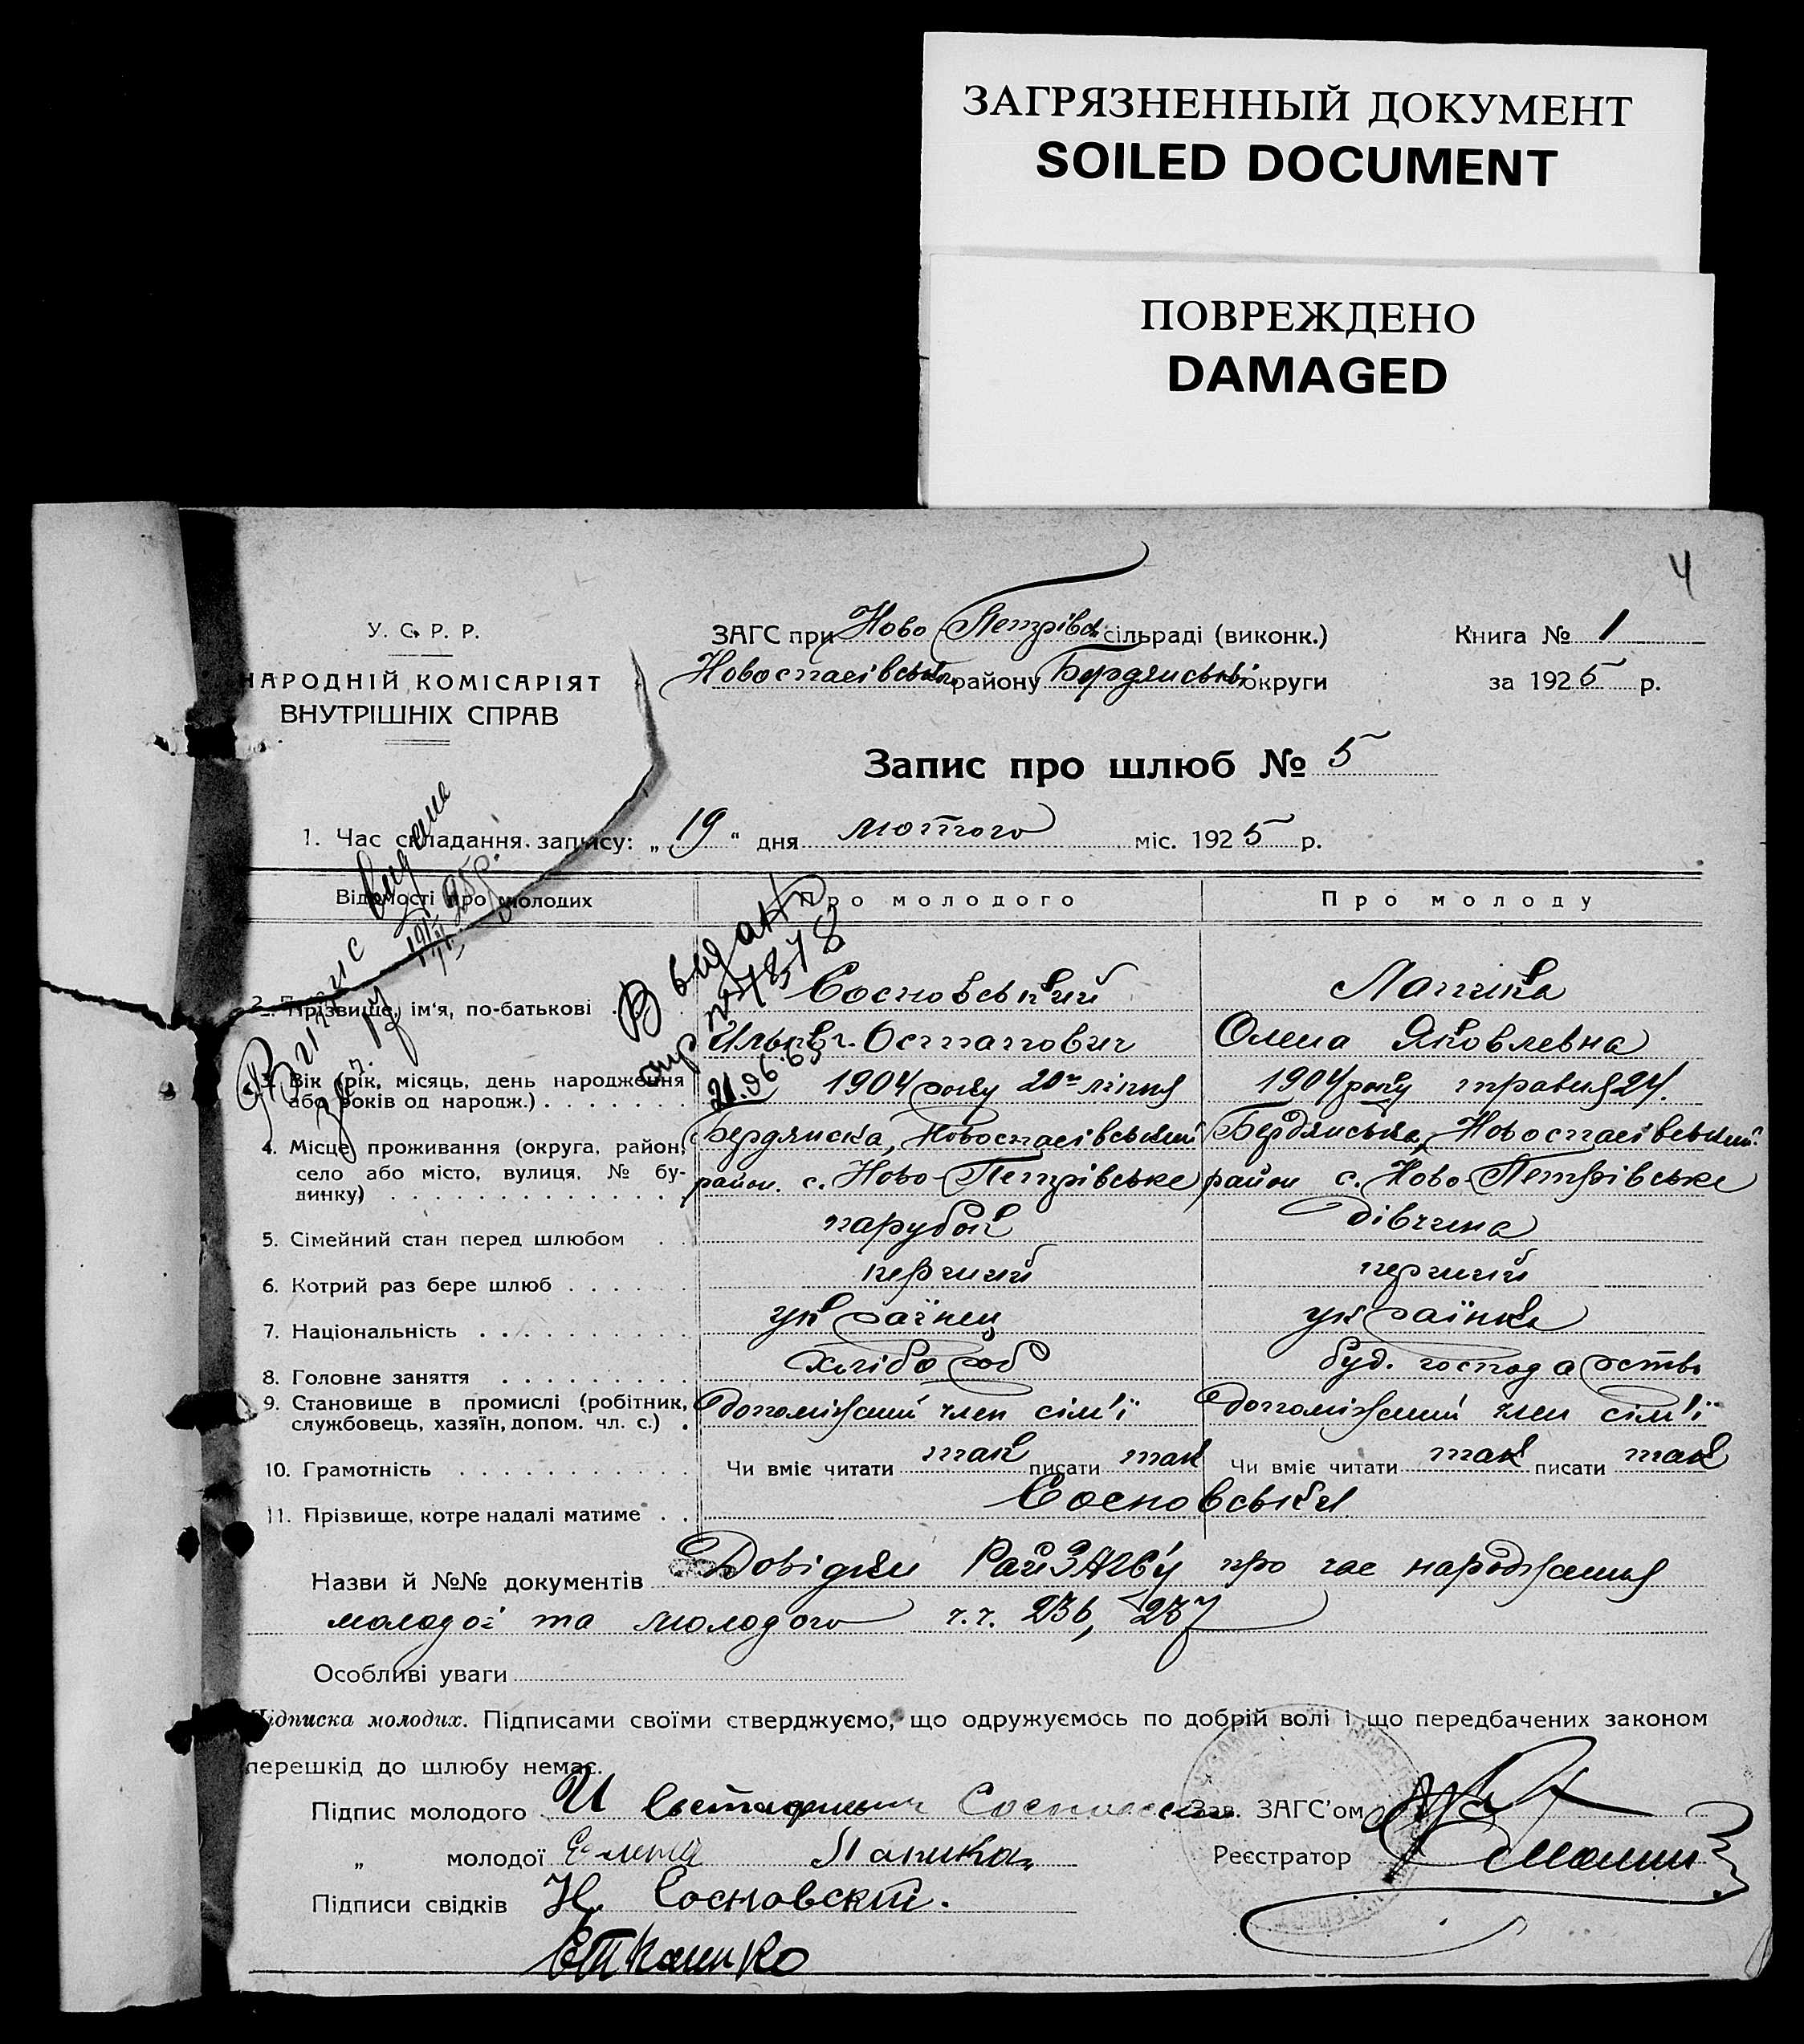 ЗАГРЯЗНЕННЫЙ ДОКУМЕНТ
SOILED DOCUMENT
ПОВРЕЖДЕНО
DAMAGED
4
У. С. Р. Р.
НАРОДНІЙ КОМІСАРІЯТ
ВНУТРІШНІХ СПРАВ
ЗАГС при Ново Петрівск сільраді (виконк.)
Новоспасівськ району Бердянської округи
Книга № 1
за 1925 р.
Запис про шлюб № 5
1. Час складання запису: „19“ дня лютого міс. 1925 р.
Випис видано
Відомості про молодих
Про молодого
Про молоду
2. Прізвище, ім'я, по-батькові
Сосновський
Лапика
Остапович
Олена Яковлевна
21.06.65
3. Вік (рік, місяць, день народження або років од народж.)
1904 року 20го ліпня
1904 року травня 24.
4. Місце проживання (округа, район, село або місто, вулиця, № будинку)
Бердянска, Новоспасівський район. с. Ново-Петрівське
Бердянська, Новоспасівський район с. Ново-Петрівське
5. Сімейний стан перед шлюбом
парубок
дівчина
6. Котрий раз бере шлюб
перший
перший
7. Національність
українец
українка
8. Головне заняття
хлібороб
буд. господарство
9. Становище в промислі (робітник, службовець, хазяїн, допом. чл. с.)
допоміжний член сім'ї
допоміжний член сім'ї
10. Грамотність
Чи вміє читати так писати так
Чи вміє читати так писати так
11. Прізвище, котре надалі матиме
Сосновські
Назви й №№ документів Довідки РайЗАГС'у про час народження
молодої та молодого ч.ч. 236, 237
Особливі уваги
Підписка молодих. Підписами своїми стверджуємо, що одружуємось по добрій волі і що передбачених законом
перешкід до шлюбу немає.
Підпис молодого И
Зав. ЗАГС'ом
„ молодої Елена Лапика
Реєстратор
Підписи свідків Н. Сосновскій.